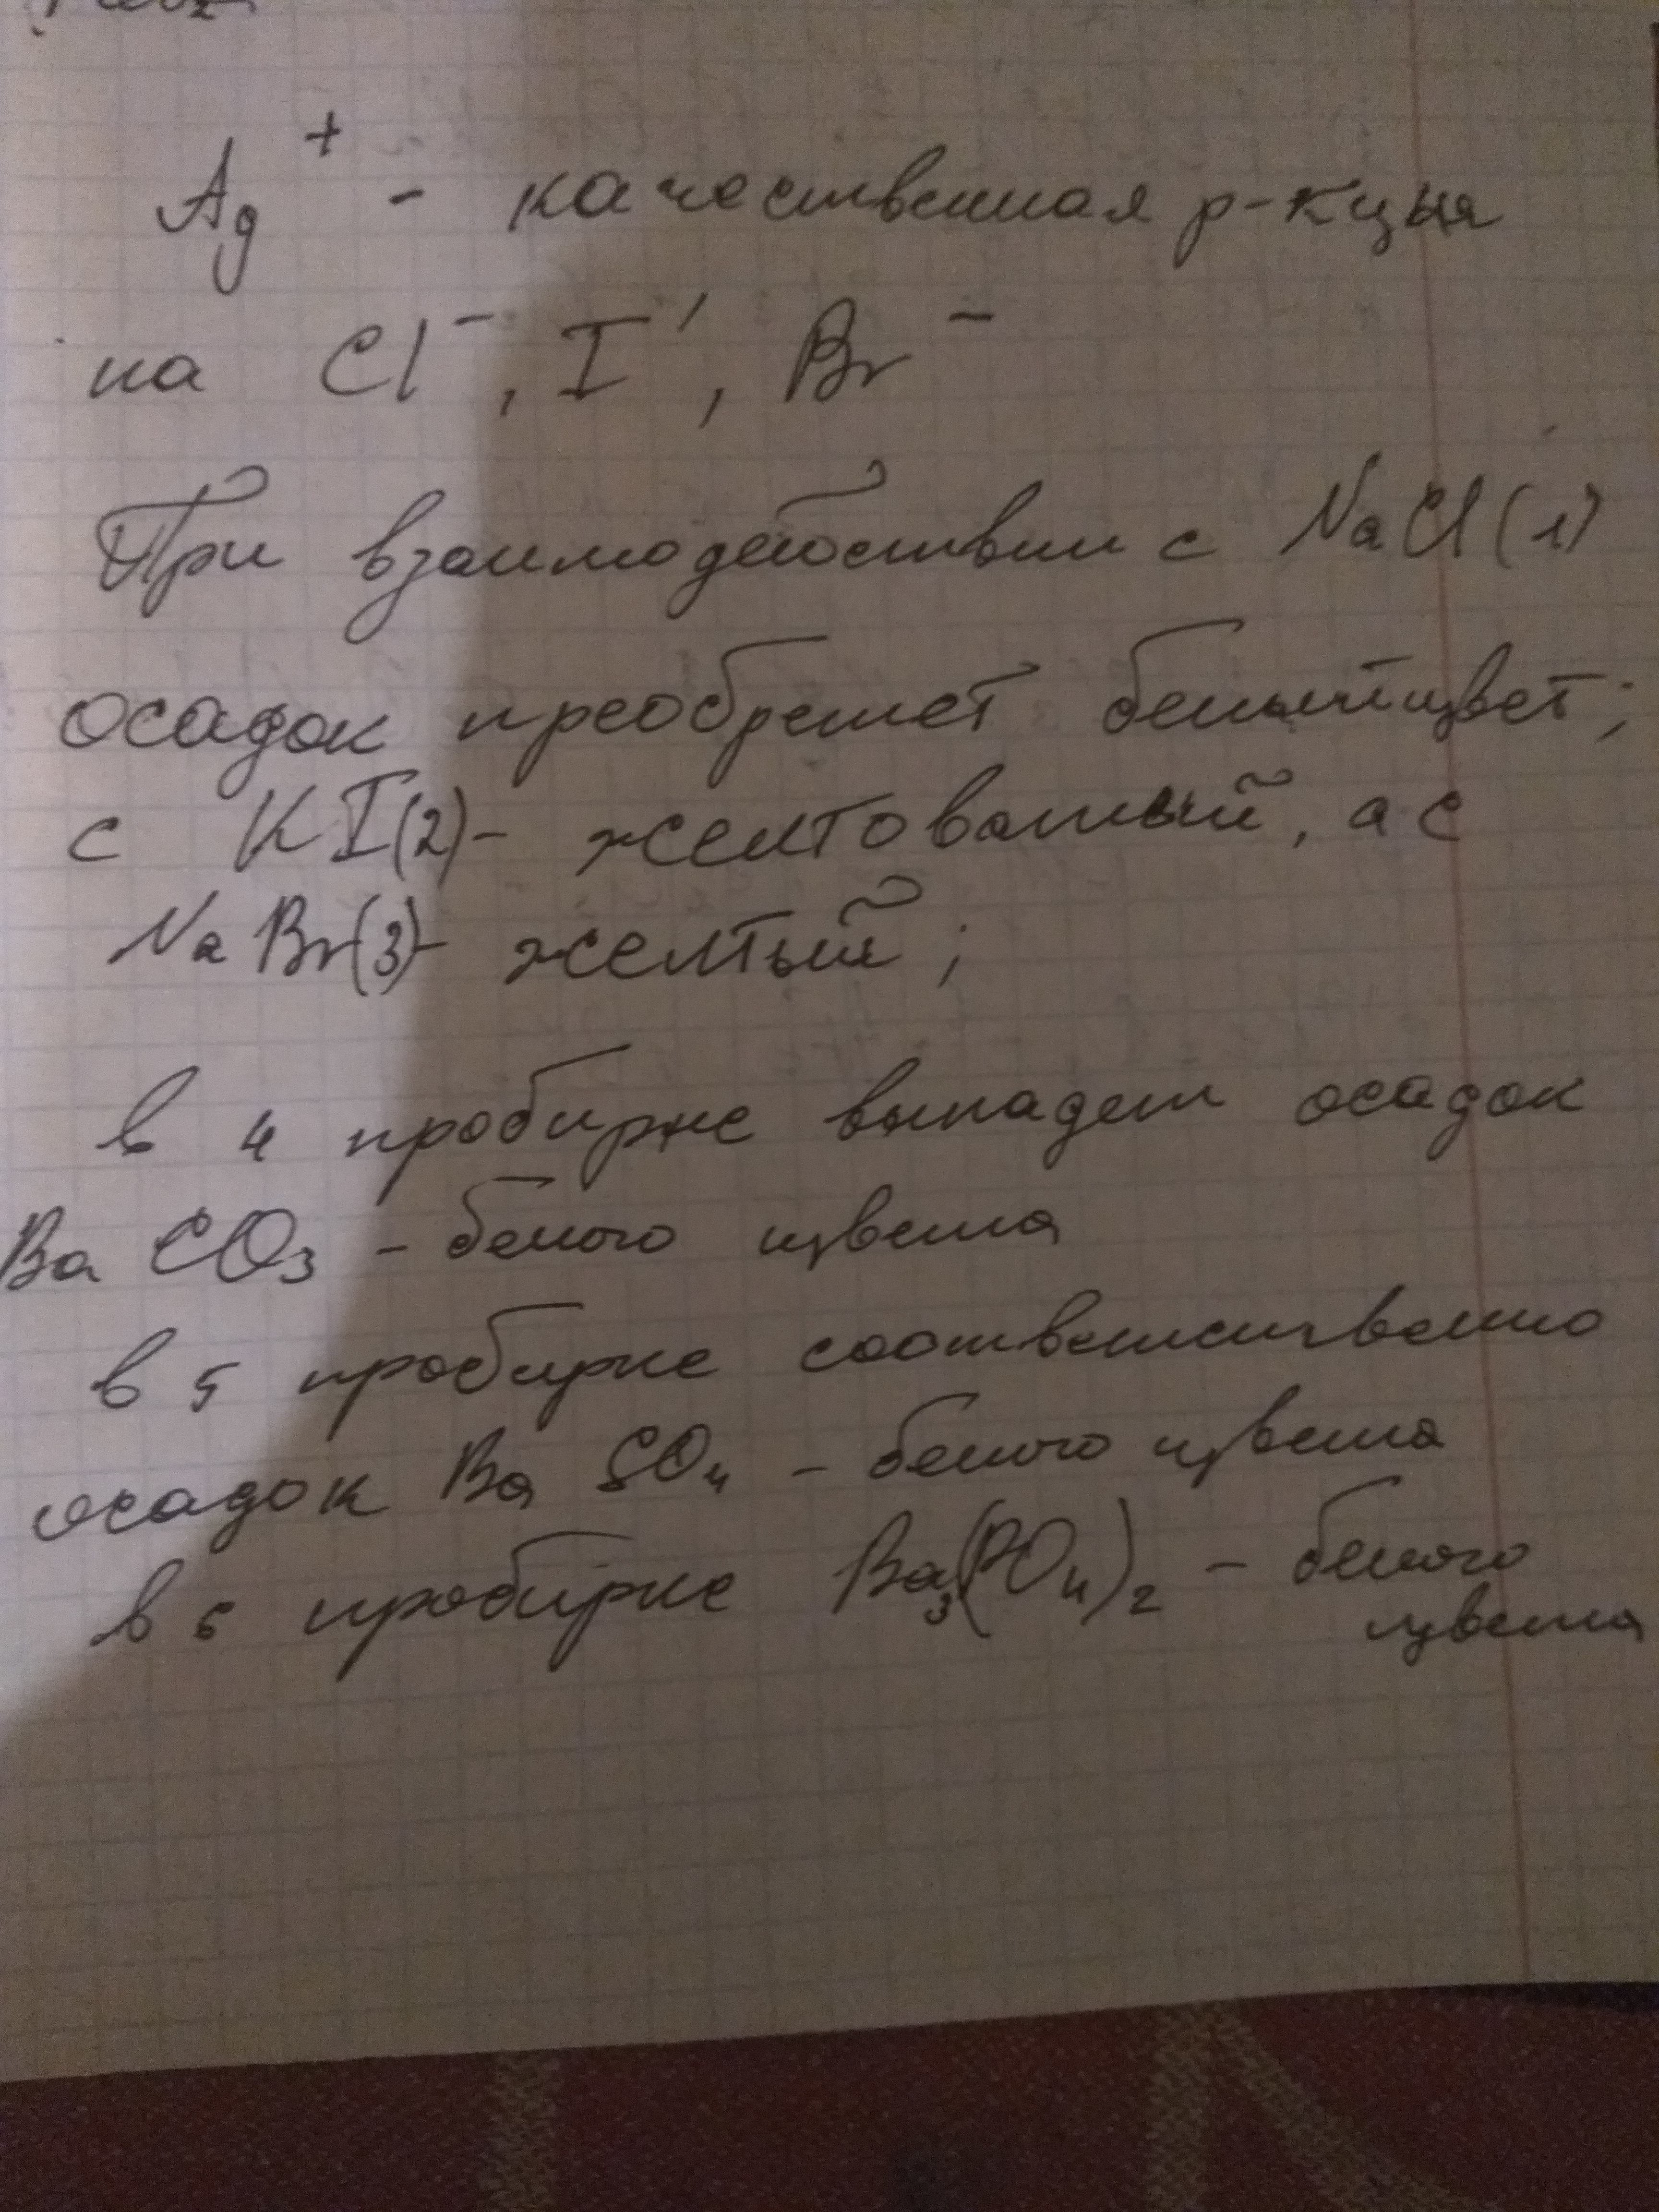 Ag⁺ - качественная р-кцыя
на Cl⁻, I⁻, Br⁻
При взаимодействии с NaCl (1)
осадок преобретет белый цвет;
с KI(2)- желтоватый, а с
NaBr(3)- желтый;
в 4 пробирке выпадет осадок
BaCO₃ - белого цвета
в 5 пробирке соответственно
осадок BaSO₄ - белого цвета
в 6 пробирке Ba₃(PO₄)₂ - белого
цвета